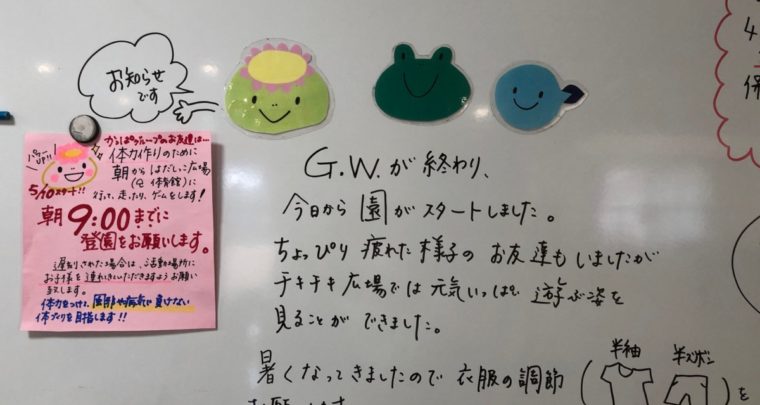 お知らせ
です
パワー
UP!!
5/10スタート!!
かっぱグループのお友達は…
体力作りのために
朝からはだしっこ広場
(@体育館)に
行って、走ったり、ゲームをします!
朝9:00までに
登園をお願いします。
遅刻された場合は、活動場所に
お子様を連れ
致します。
体力をつけて、風邪や病気に負けない
体づくりを目指します!!
G.W.が終わり、
今日から園がスタートしました。
ちょっぴり疲れた様子のお友達もいましたが
チキチキ広場では元気いっぱい遊ぶ姿を
見ることができました。
半袖
半ズボン
暑くなってきましたので衣服の調節
(
)を
4
保